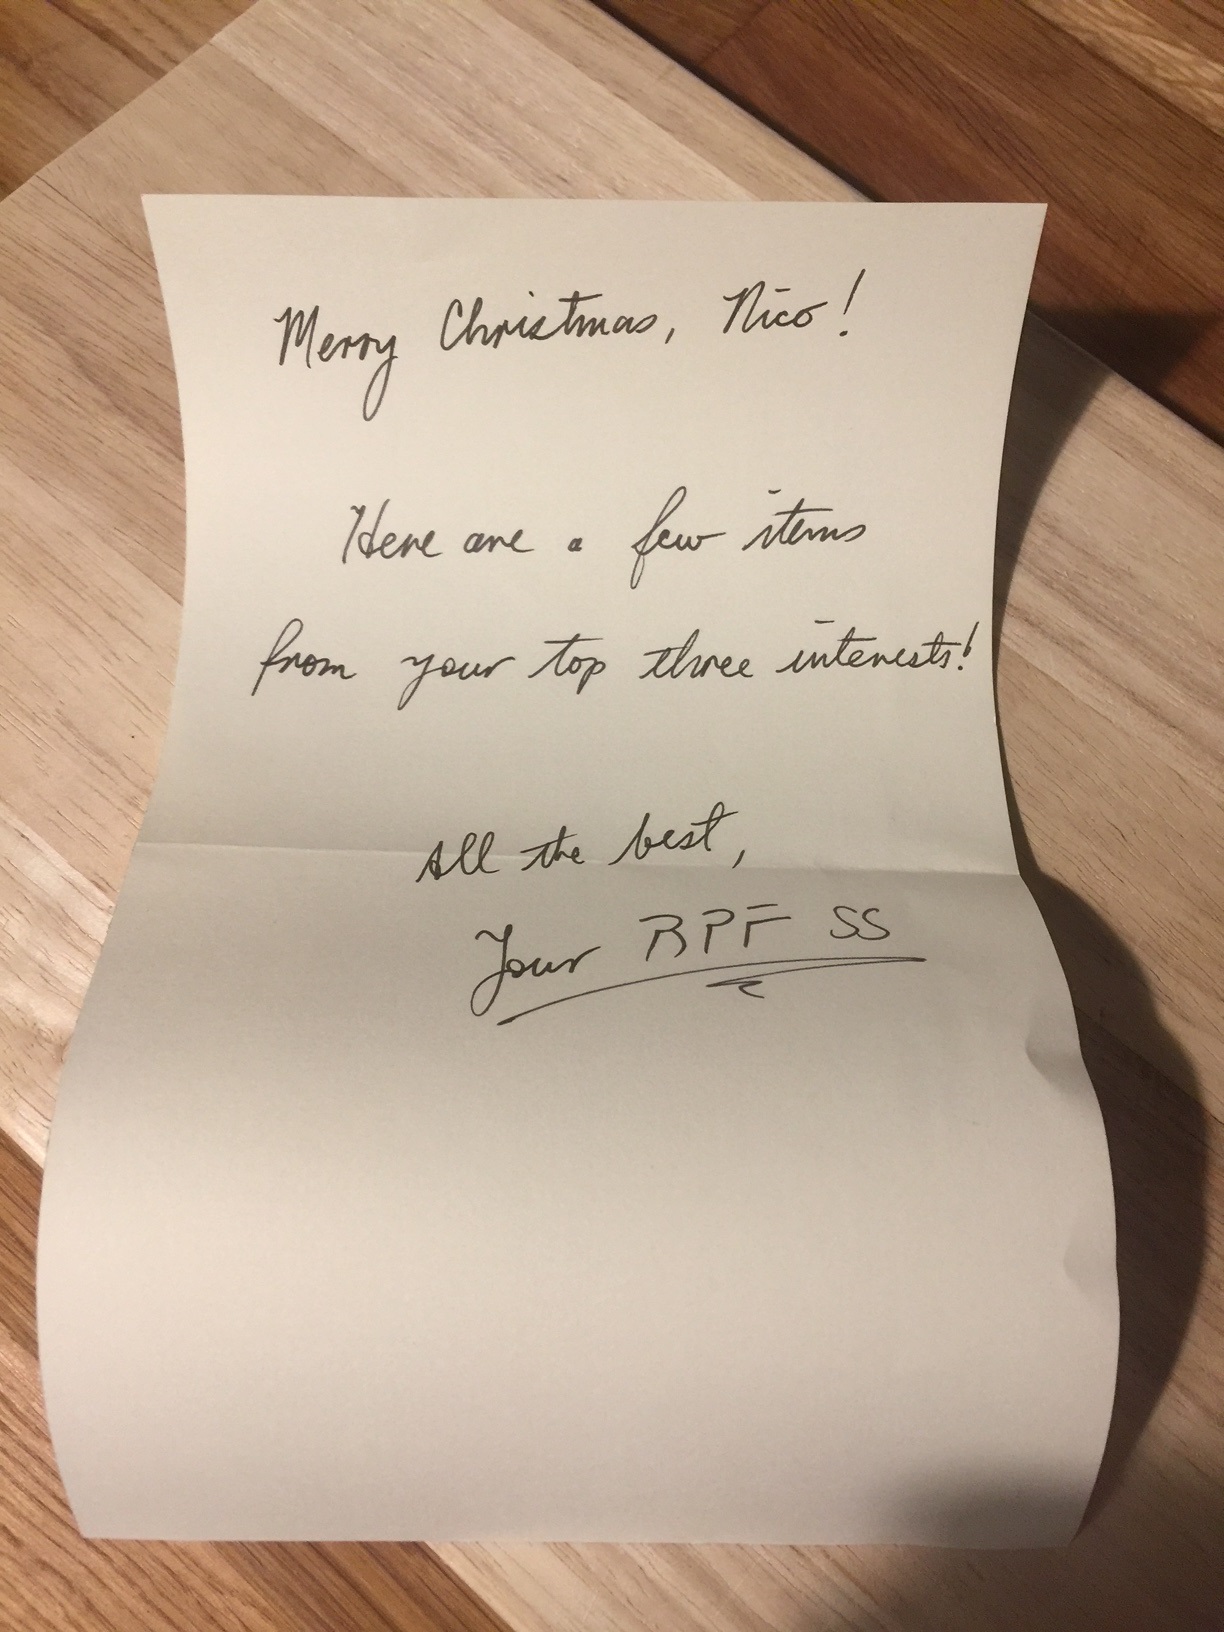 Merry Christmas, Nico!
Here are a few items
from your top three interests!
All the best,
Your RPF SS